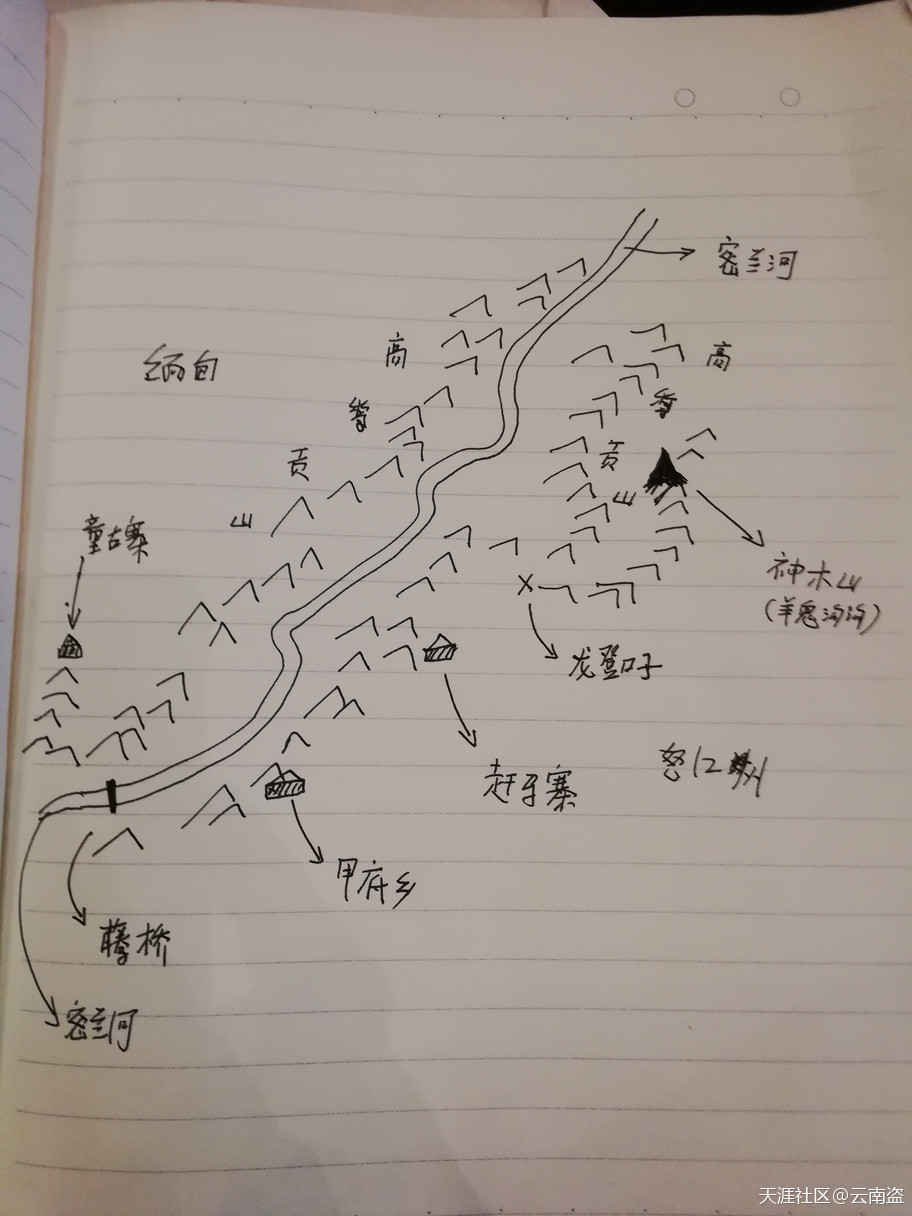 密兰河
缅甸
高
黎
贡
山
高
黎
贡
山
童古寨
神木山
(羊鬼沟沟)
龙登口子
赶牙寨
怒江州
甲府乡
藤桥
密兰河
天涯社区@云南盗